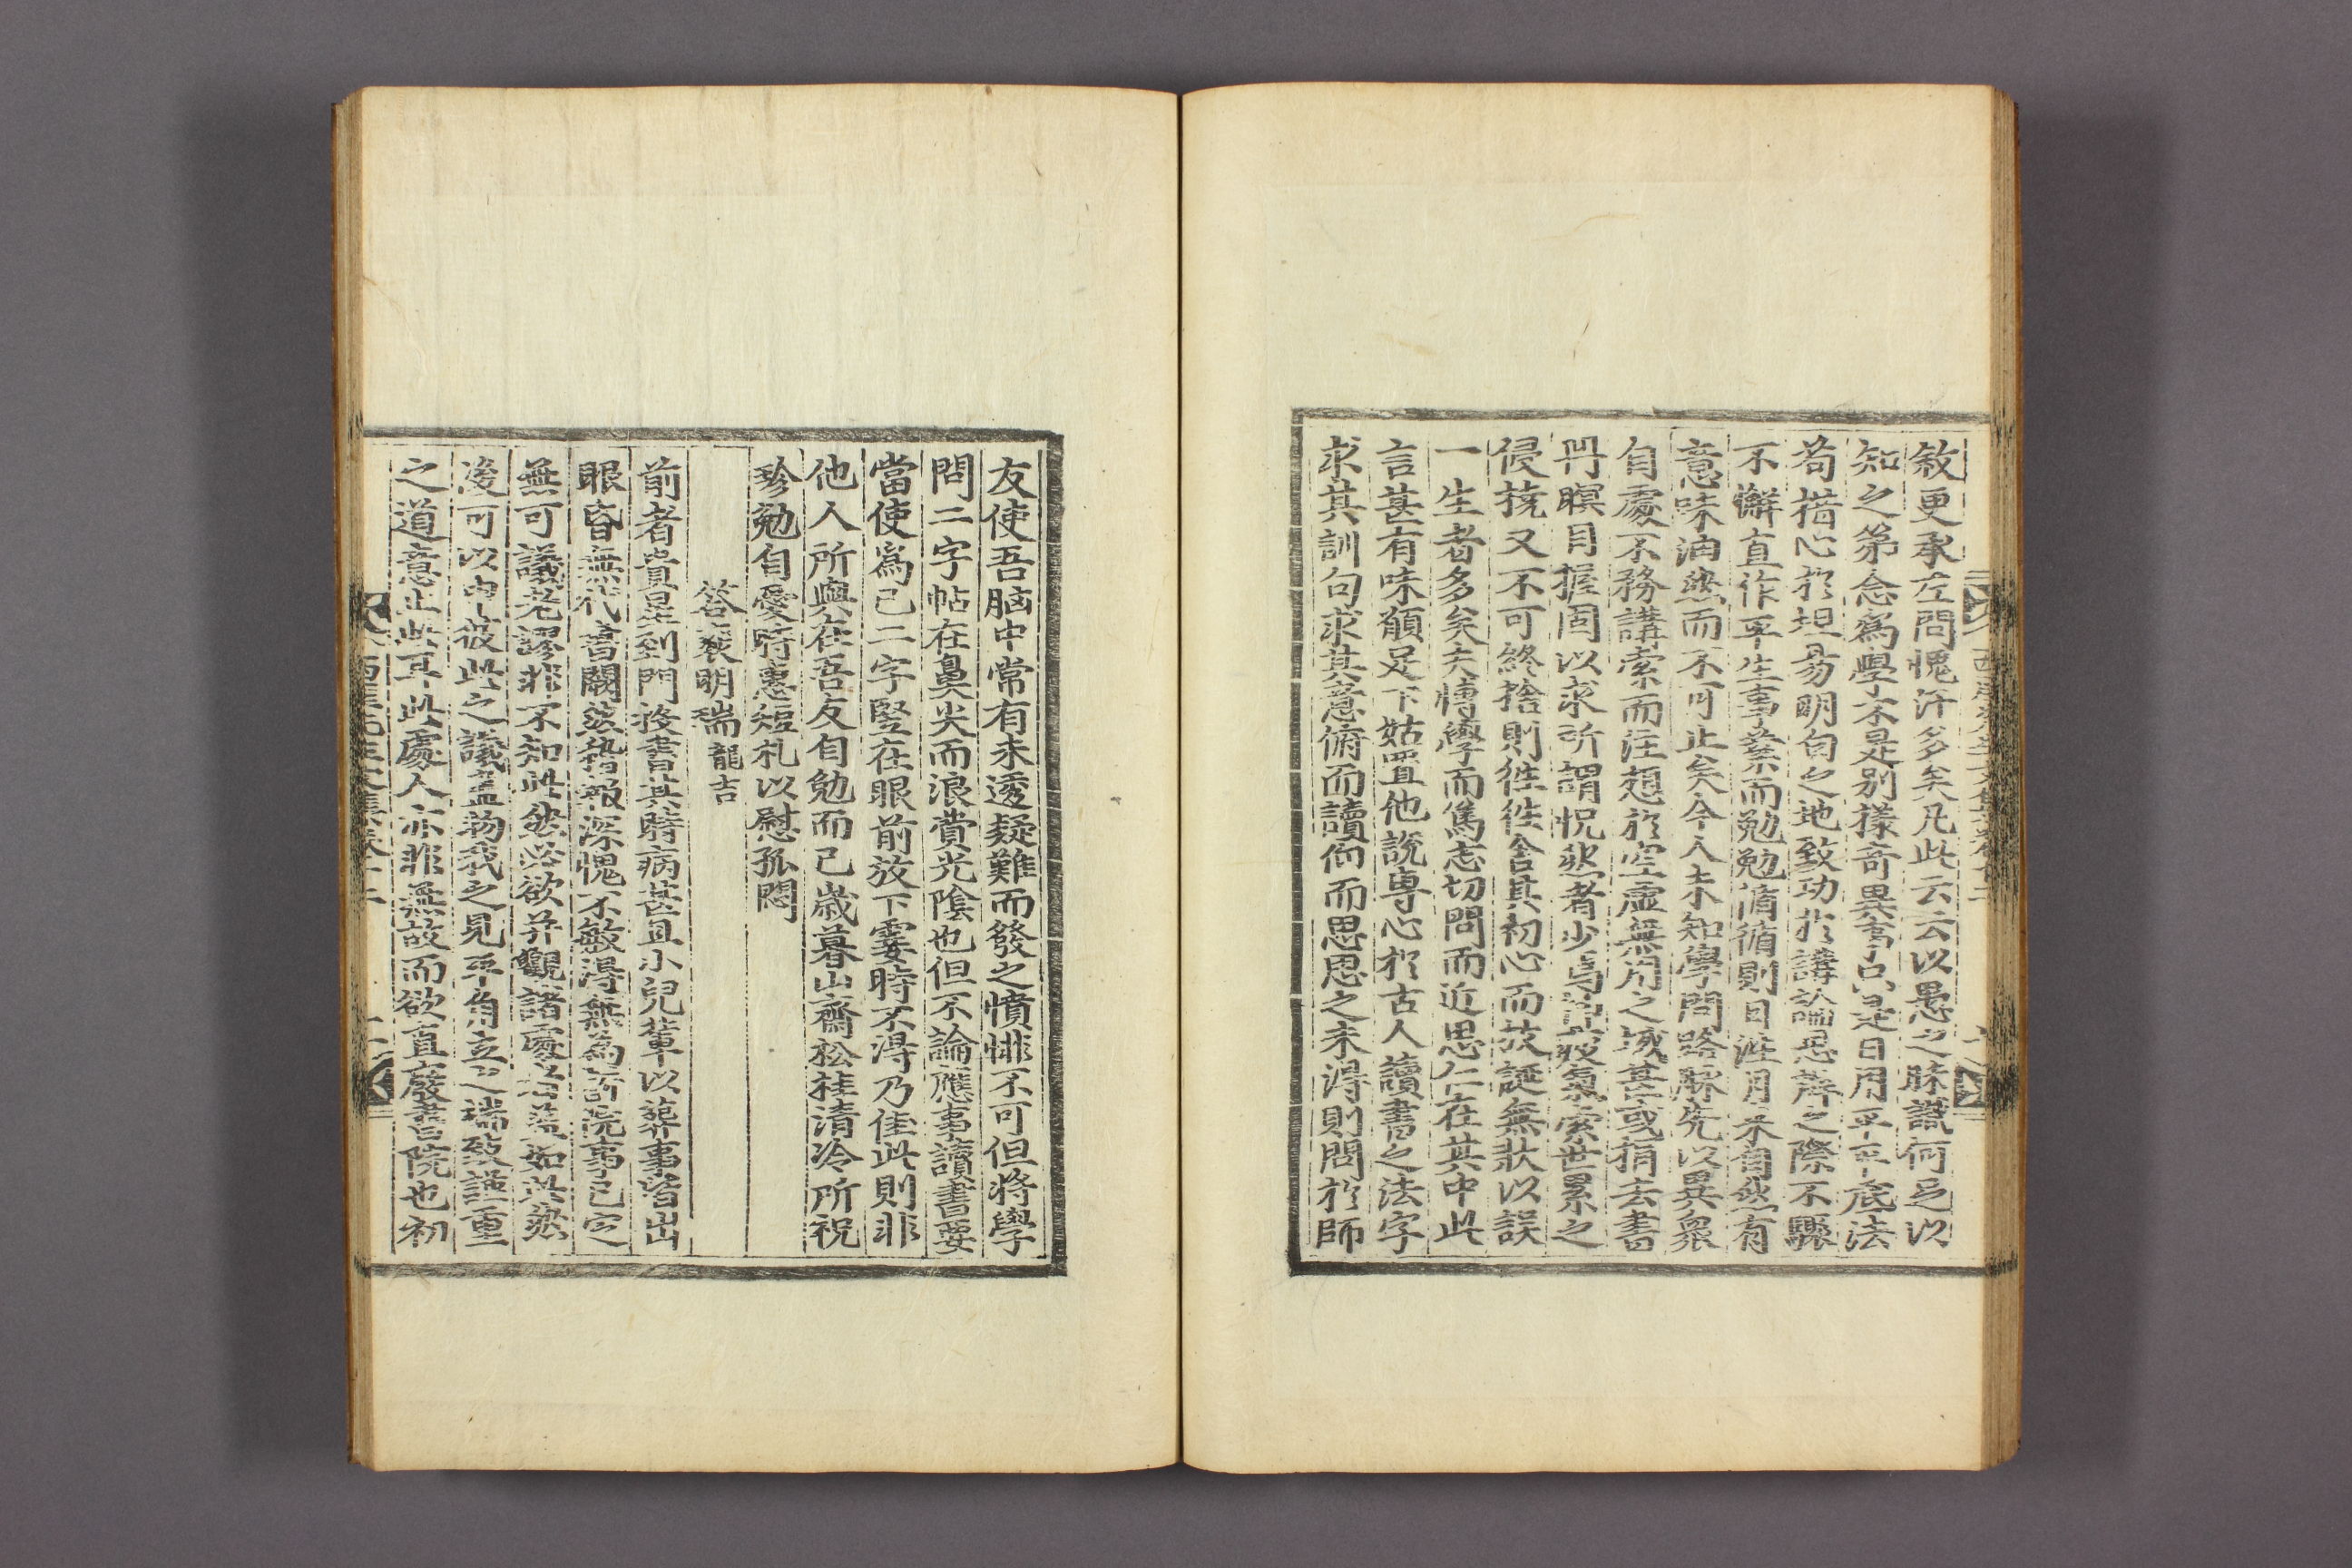 敍更承左問愧汗多矣凡此云云以愚之昧識何足以
知之第念爲學不是別樣奇異事只是日用平平底法
苟措心於坦易明白之地致功於講論思辨之際不驟
不懈直作平生事業而勉勉循循則日涯月來自然有
意味油然而不可止矣今人未知學問路脉先以異衆
自處不務講索而注想於空虛無用之域甚或捐去書
冊瞑目握固以求所謂怳然者少焉
侵撓又不可終捨則徃徃舍其初心而茂誕無狀以誤
一生者多矣夫博學而篤志切問而近思仁在其中此
言甚有味願足下姑置他說專心於古人讀書之法字
求其訓句求其意俯而讀仰而思思之未得則問於師
友使吾脑中常有未透疑難而發之憤悱不可但將學
問二字帖在鼻尖而浪費光陰也但不論應事讀書要
當使爲己二字竪在眼前放下霎時不得乃佳此則非
他人所與在吾友自勉而已歲暮山齋松桂淸冷所祝
珍勉自愛時惠短札以慰孤悶
答裵明瑞龍吉
前者貴星到門投書其時病甚且小兒輩以葬事皆出
眼昏無代書闕然稽報深愧不敏得無爲訝院事已定
無可議老謬非不知此然必欲幷觀諸處者蓋如此然
後可以申彼此之議盡物我之見平角立之端致謹重
之道意止此耳此處人亦非無故而欲直廢書院也初